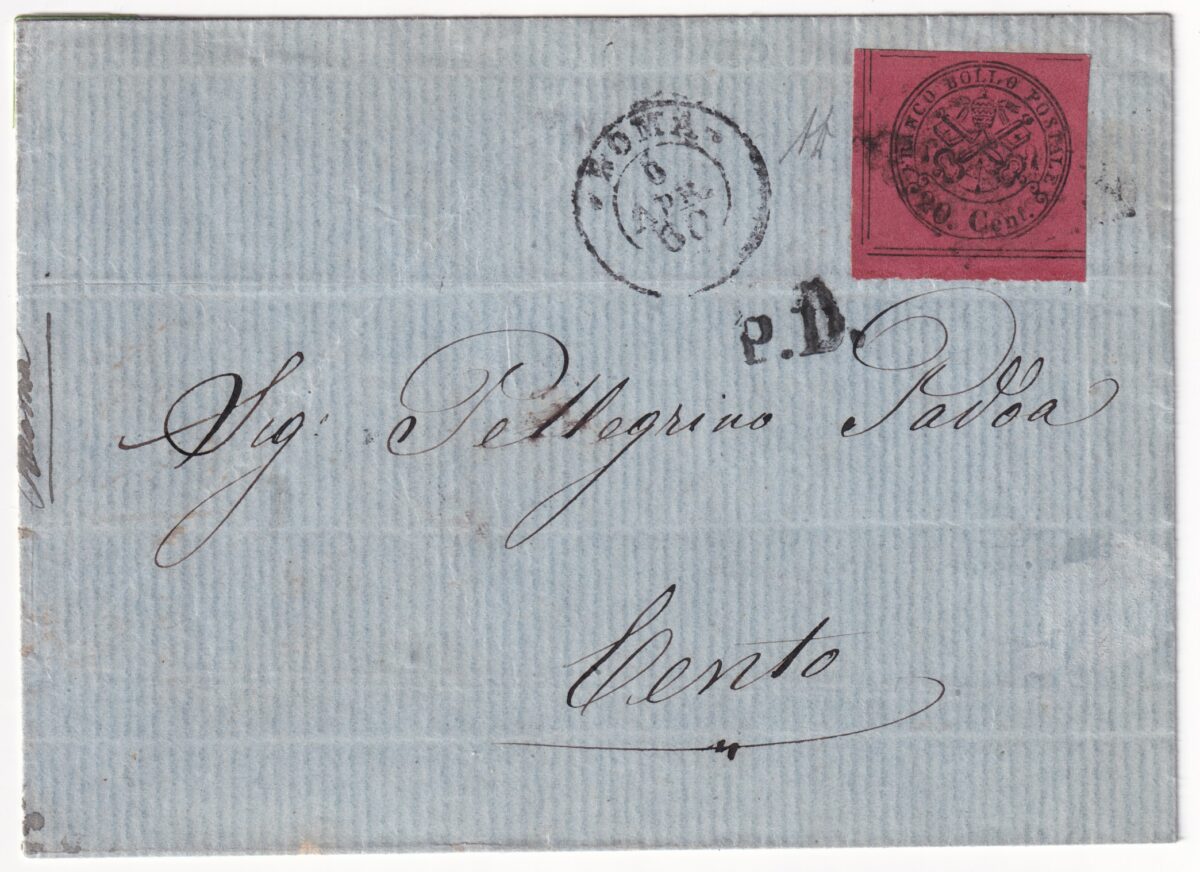 ROMA
6
FRANCO BOLLO POSTALE
20. Cent.
P.D.
Sig: Pellegrino Padoa
Cento